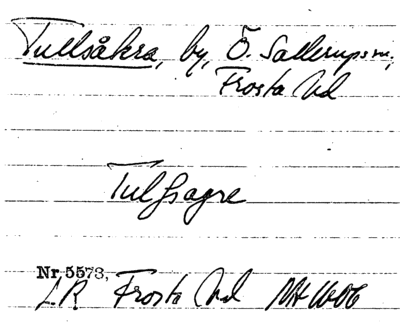 Tullsåkra, by, Ö. Sallerups sn,
Frosta hd
Tulsagre
Nr 5573,
L.R. Frosta hd